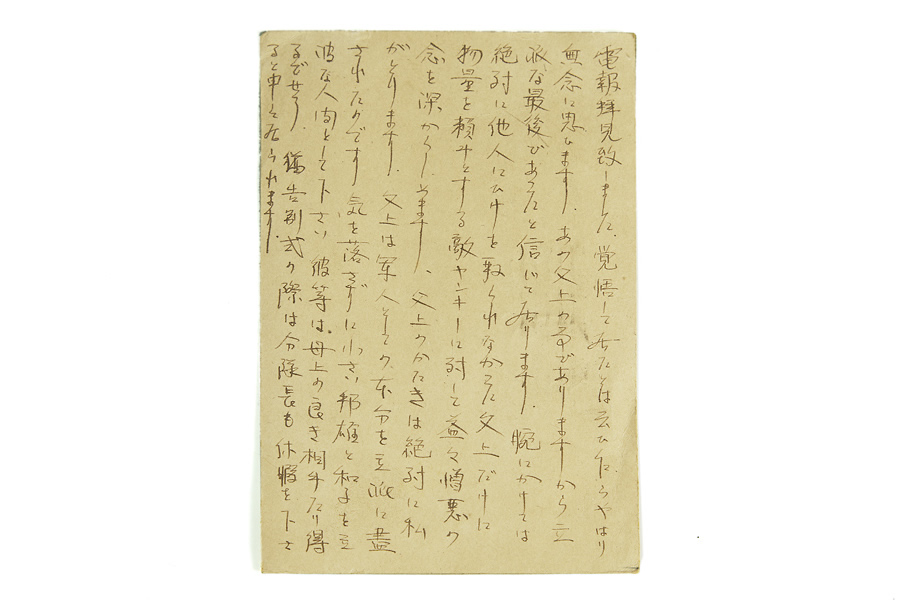 電報拝見致しました、覚悟して居たとは云ひ乍らやはり
無念に思ひます、あの父上の事でありますから立
派な最後であつたと信じて居ります、腕にかけては
絶対に他人にひけを取られなかつた父上だけに
物量を頼みとする敵ヤンキーに対して益々憎悪の
念を深からしめます、父上のかたきは絶対に私
がとります、父上は軍人としての本分を立派に盡
されたのです 気を落さずに小さい邦雄と和子を立
派な人間として下さい 彼等は母上の良き相手たり得
るでせう、猶告別式の際は分隊長も休暇を下さ
ると申して居られます、